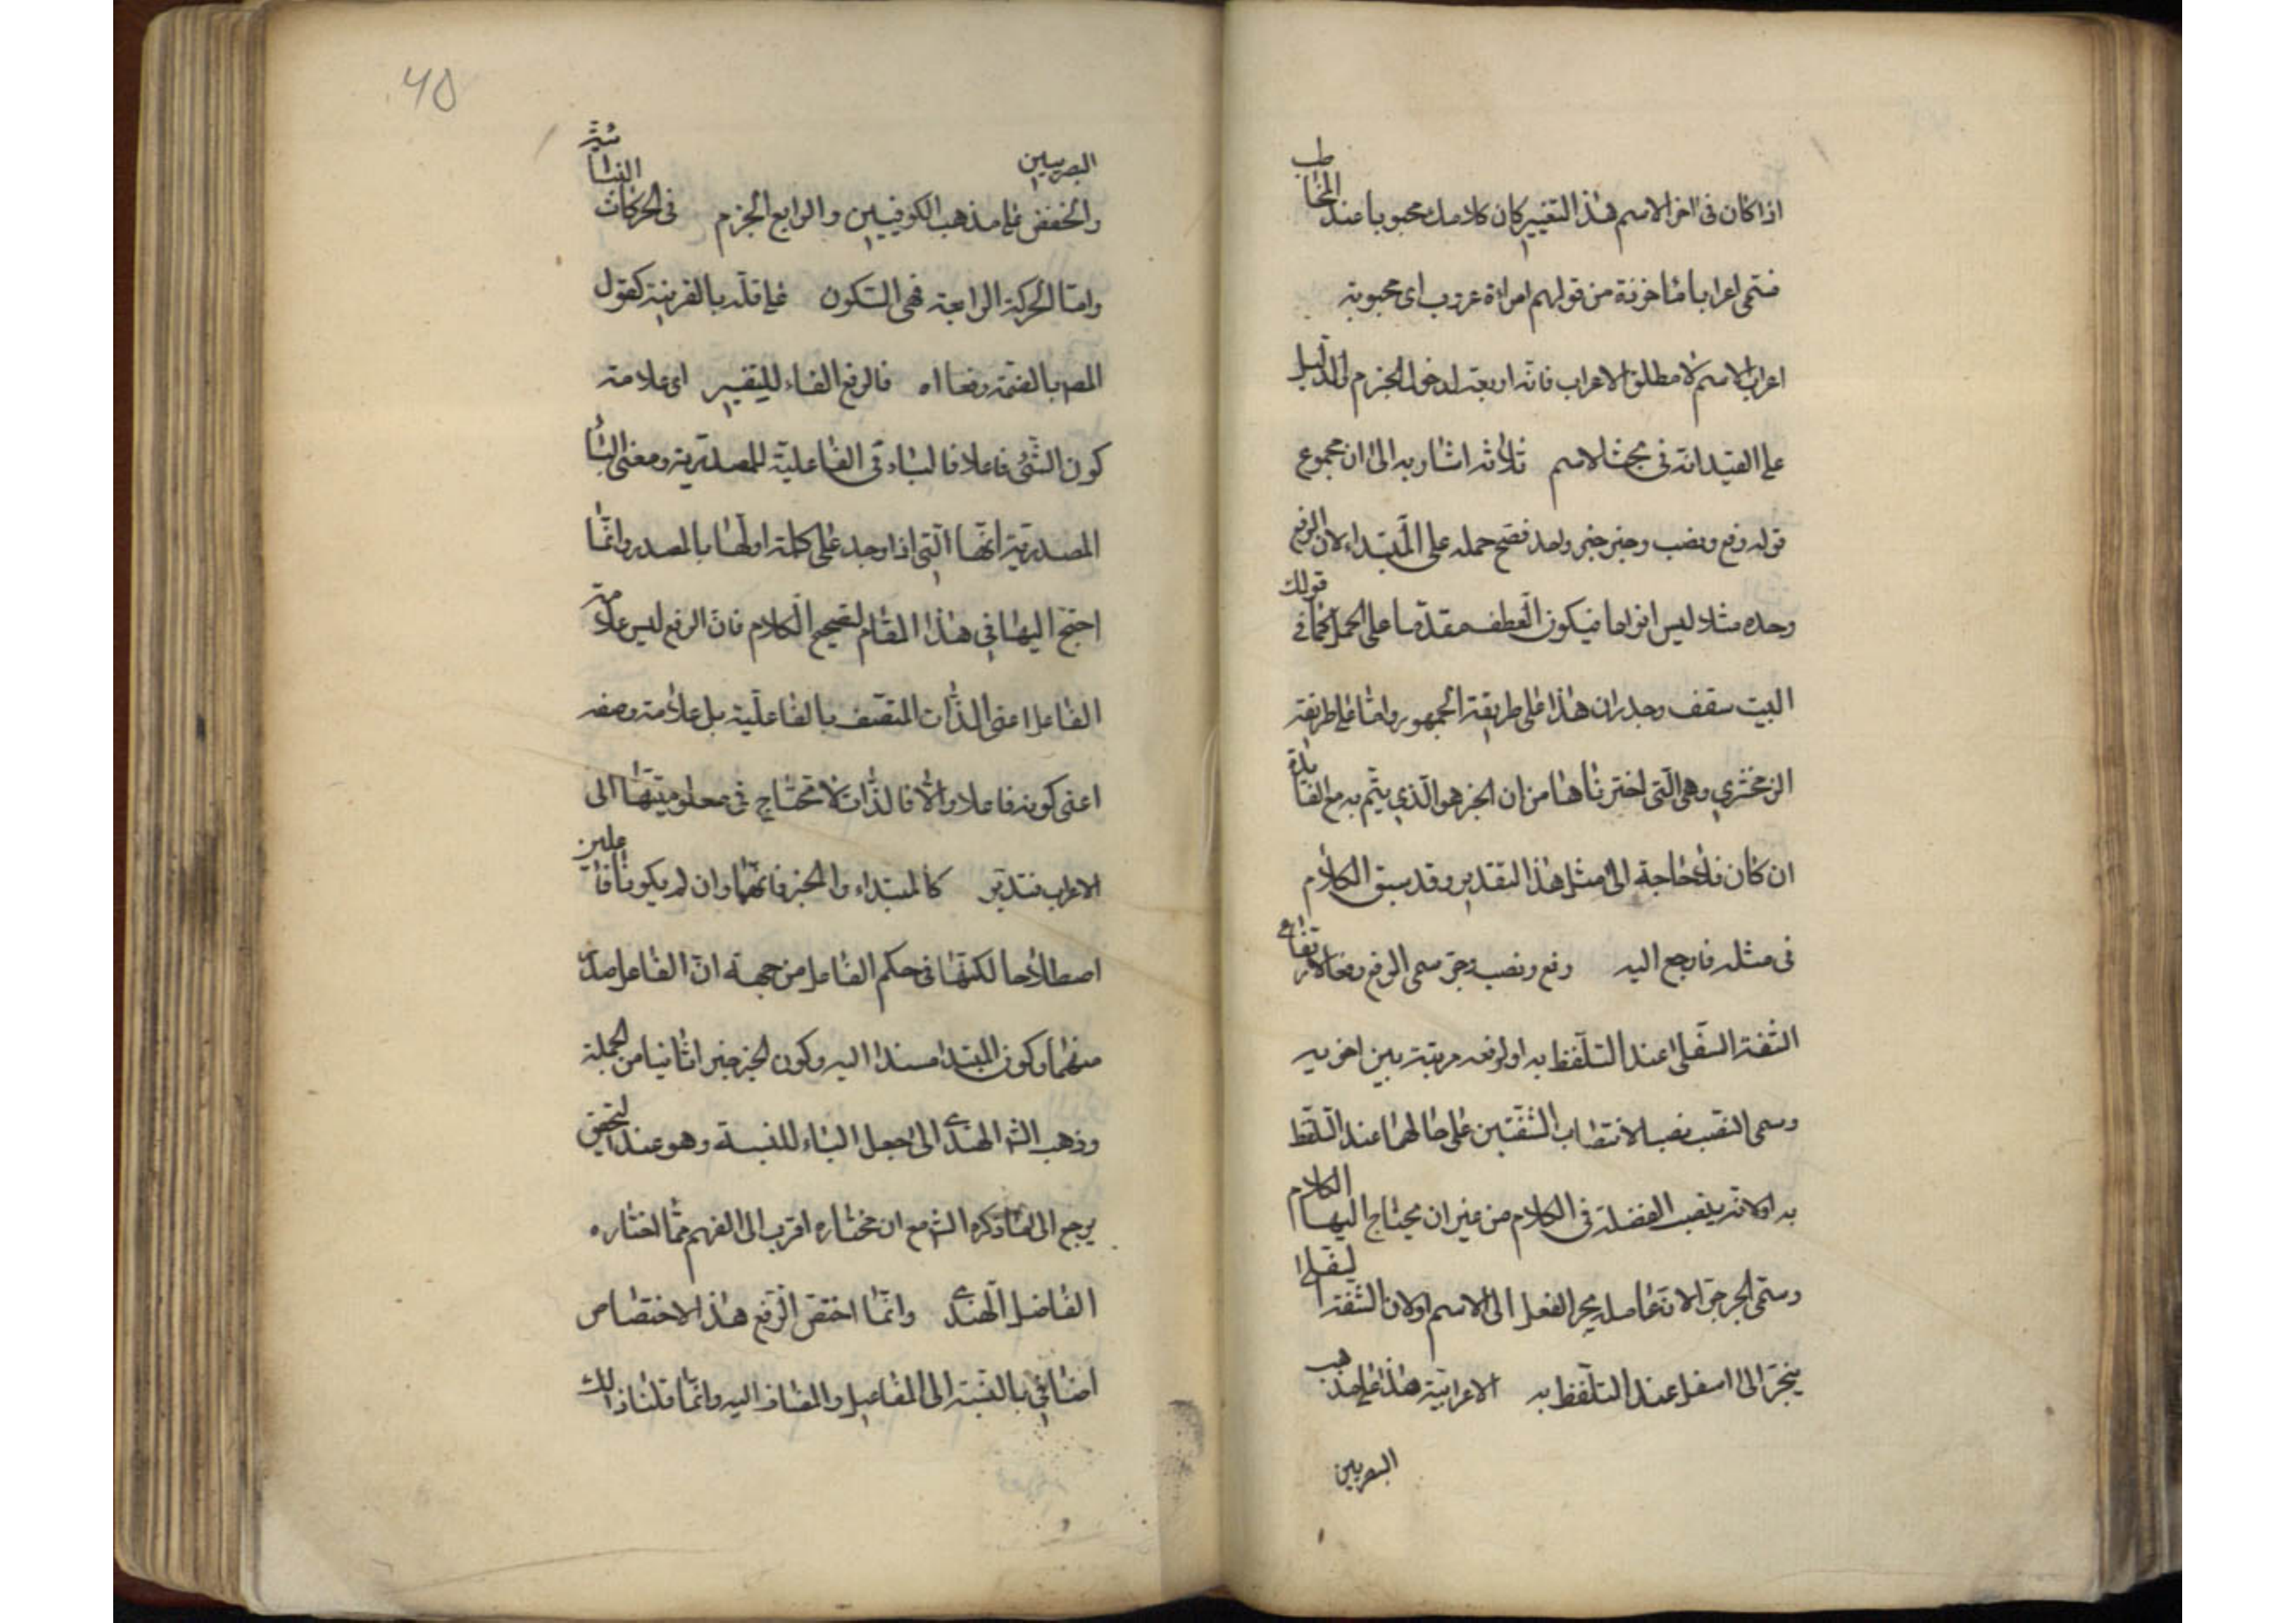 اذا كان فى اخر الاسم هذا التغيير كان كلامك محبوبا عند المخاطب
فتسمى اعرابا ماخوذة من قولهم امراة عروب اى محبوبة
اعراب الاسم لا مطلق الاعراب فانه اربعة لدخول الجزم والدليل
على القيد انه فى بحث الاسم ثلاثة اشار به الى ان مجموع
قوله رفع ونصب وجر خبر واحد فصح حمله على المبتداء لان الرفع
وحده مثلا ليس انواعا فيكون العطف مقدما على الحمل كما فى قولك
البيت سقف وجدران هذا على طريقة الجمهور واما على طريقة
الزمخشري وهى التى اخترناها من ان الخبر هو الذي يتم به مع الفايدة
ان كان فلا حاجة الى مثل هذا التقدير وقد سبق الكلام
فى مثله فارجع اليه رفع ونصب وجر سمى الرفع رفعا لارتفاع
الشفة السفلى عند التلفظ به او لرفعه مرتبة بين اخويه
وسمى النصب نصبا لانتصاب الشفتين على حالهما عند التلفظ
به او لانه ينصب الفضلة فى الكلام من غير ان يحتاج اليها الكلام
وسمى الجر جرا لان عامله يجر الفعل الى الاسم او لان الشفة السفلى
ينجر الى اسفل عند التلفظ به الاعرابية هذا على مذهب
البصريين
40
البصريين
والخفض على مذهب الكوفيين والرابع الجزم فى الحركات
واما الحركة الرابعة فهى السكون على قلة بالقرينة كقول
المص بالضمة رفعا اه فالرفع الفاء للتفسير اى علامة
كون الشئ فاعلا فالياء فى الفاعلية للمصدرية ومعنى الياء
المصدرية انها التى اذا وجد على كلمة اولها بالمصدر وانما
احتج اليها فى هذا المقام لتصحيح الكلام فان الرفع ليس علامة
الفاعل اعنى الذات المتصف بالفاعلية بل علامة وصفه
اعنى كونه فاعلا والا فالذات لا تحتاج فى معلوميتها الى
الاعراب فتدبر كالمبتداء والخبر فانهما وان لم يكونا فاعلين
اصطلاحا لكنهما فى حكم الفاعل من جهة ان الفاعل
منهما وكون المبتدا مسندا اليه وكون الخبر جزءا ثانيا من الجملة
وذهب الش الهندى الى جعل الياء للنسبة وهو عند التحقيق
يرجع الى ما ذكره الش مع ان مختاره اقرب الى الفهم مما اختاره
الفاضل الهندى وانما اختص الرفع هذا الاختصاص
اضافى بالنسبة الى المفاعيل والمضاف اليه وانما قلنا ذالك